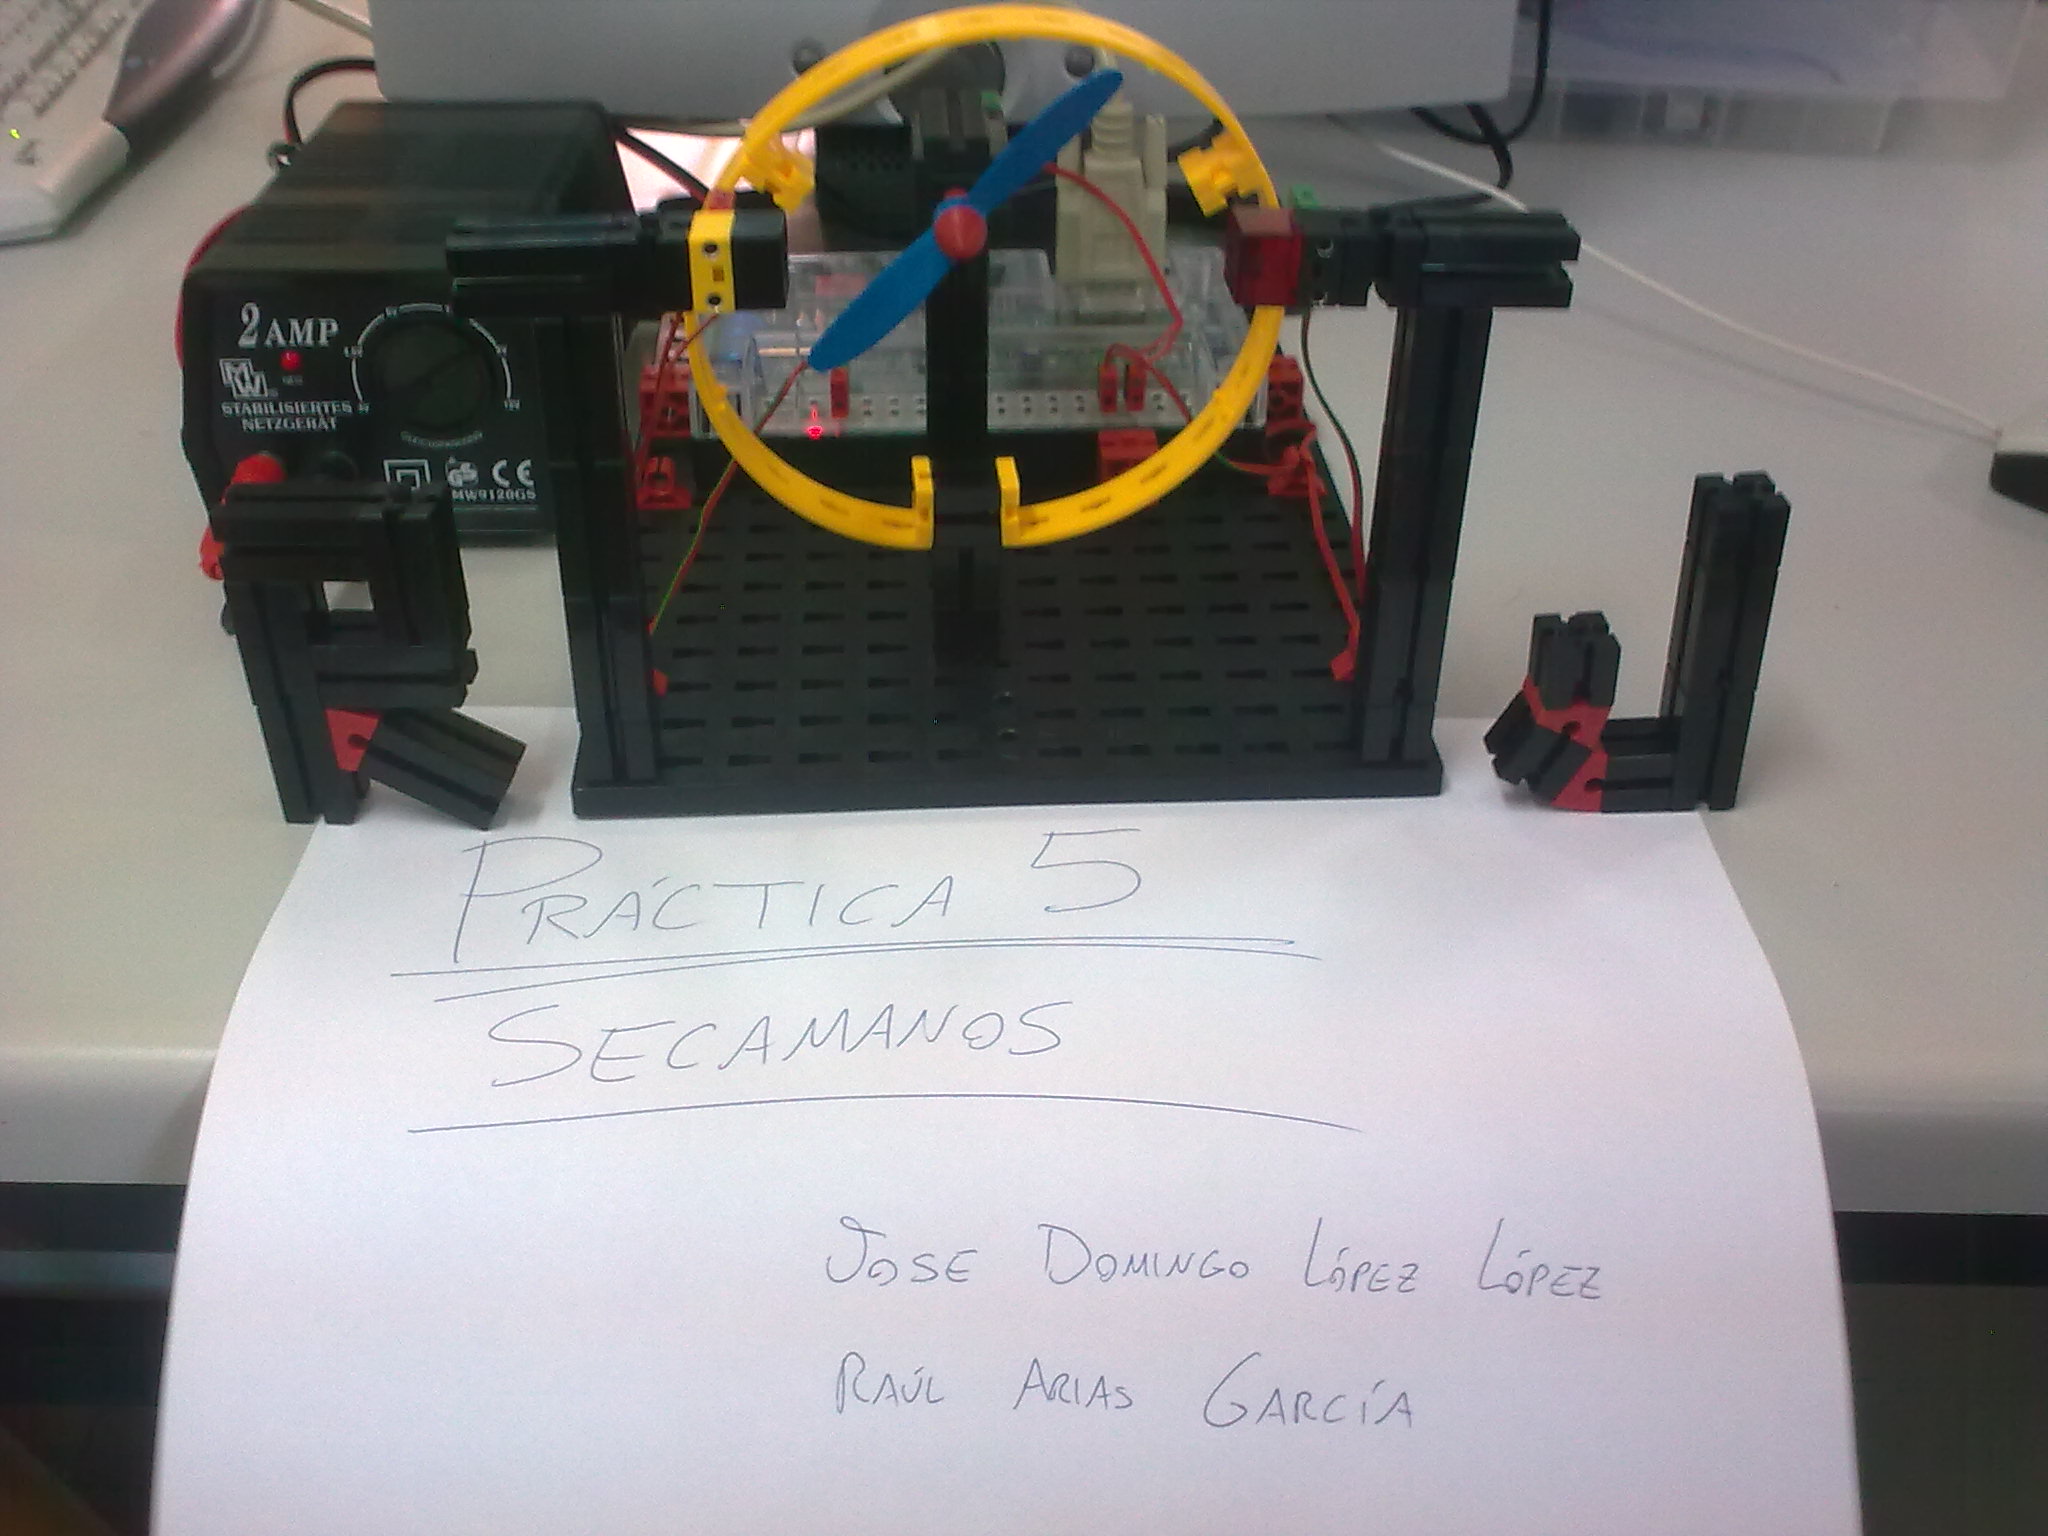 2 AMP
MW
STABILISIERTES
NETZGERÄT
GS CE
MW9120GS
PRÁCTICA 5
SECAMANOS
JOSE DOMINGO LÓPEZ LÓPEZ
RAÚL ARIAS GARCÍA